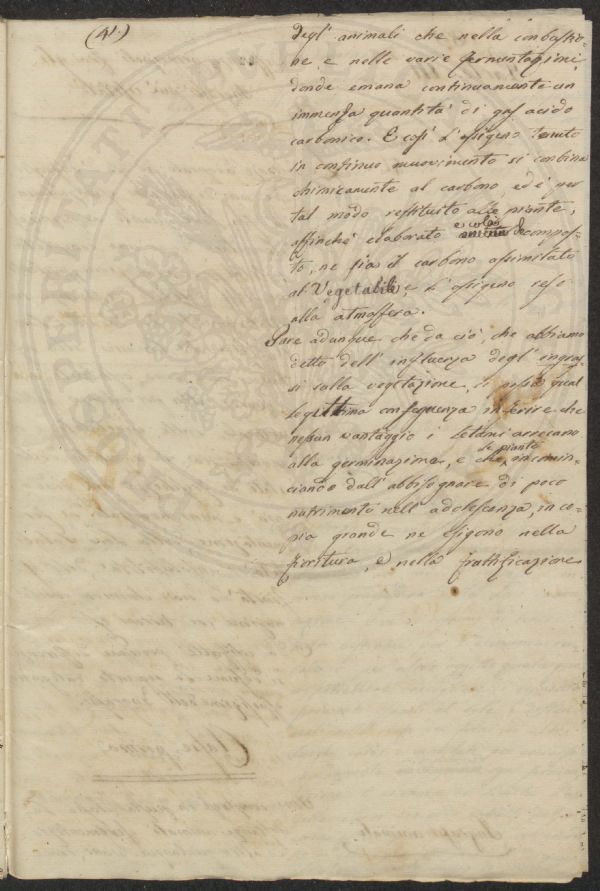 (41.)
degl' animali che nella combustio-
ne, e nelle varie fermentazioni,
donde emana continuamente un
immensa quantità di gas acido
carbonico. E così l'ossigeno tenuto
in continuo muovimento si combina
chimicamente al carbono ed è per
tal modo restituito alle piante,
affinchè elaborato e colà decompos-
to, ne sia il carbono assimilato
al Vegetabile, e l'ossigeno reso
alla atmosfera.
Pare adunque che da ciò, che abbiamo
detto dell' influenza degl' ingras-
si sulla vegetazione, si possa qual
legittima conseguenza inferire che
nessun vantaggio i letami arrecano
alla germinazione, e che le piante incomin-
ciando dall' abbisognare di poco
nutrimento nell' adolescenza, in co-
pia grande ne esigono nella
fioritura, e nella fruttificazione